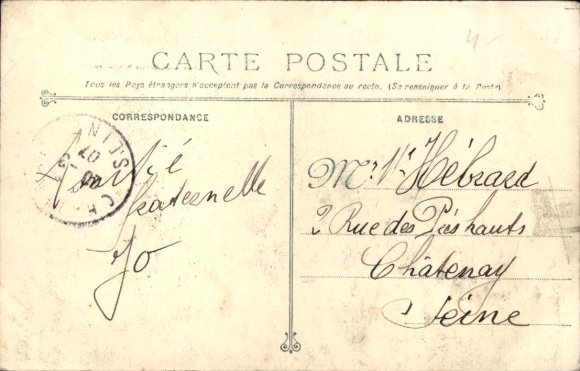 4-
CARTE POSTALE
Tous les Pays étrangers n'acceptent pas la Correspondance au recto. (Se renseigner à la Poste)
CORRESPONDANCE
Amitié
fraternelle
Jo
ADRESSE
M. Hébrard
2 Rue des Prés hauts
Châtenay
Seine